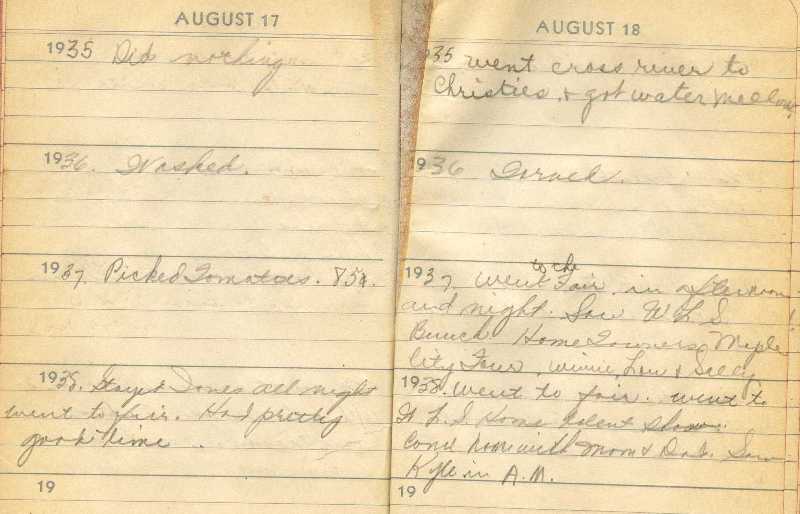 AUGUST 17
1935 Did nothing
1936. Washed.
1937. Picked Tomatoes. 85¢.
1938. Stayed Jones all night
went to fair. Had pretty
good time.
19
AUGUST 18
1935 went cross river to
Christies & got water mellons
1936 Ironed.
1937. Went to the Fair in afternoon
and night. Saw W L S
Bunch Home Towners, Maple
City Four, Winnie, Lou & Sally
1938. Went to fair. went to
W L S Home talent show.
Come home with Mom & Dad. Saw
Kyle in A.M.
19